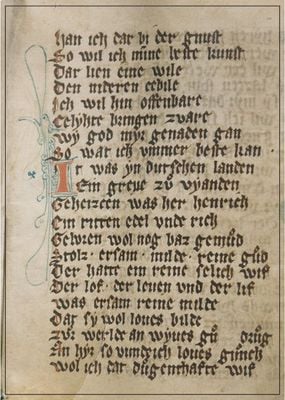 han ich dar bi der gunst
So wil ich mine beste kunst
Dar lien eine wile
Den nideren edile
Ich wil hin offenbare
Celyhte bringen zware
wy god myr genaden gan
So war ich ymmer beste kan
Ir was yn dutschen landen
Ein greve zů vyanden
Geheizeen was her henrich
Ein ritter edel unde rich
Gelvien wol nog baz gemůd
Stolz · ersam · milde · reine gůd
Der hatte ein reine selich wif
Der lof · der leven und der lif
was ersam reine milde
Dat sy wol loves bilde
zůr werlde an wyves gů drůg
An hyr so vundich loves
wol ich dat dugenthafte wif